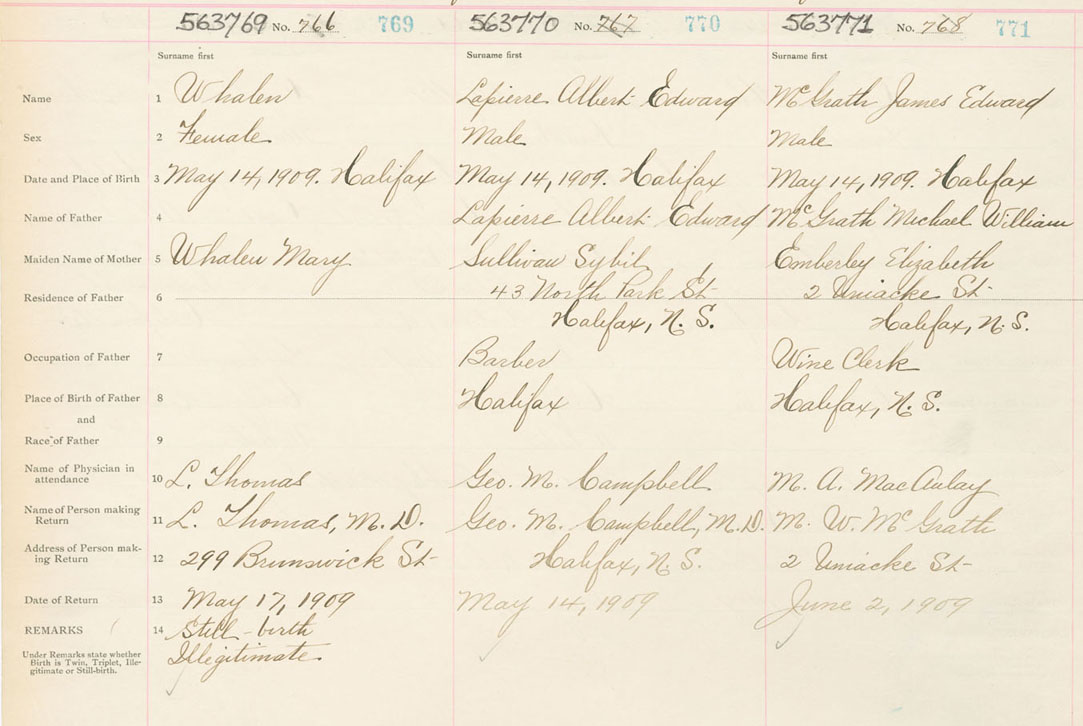 563769 No. 766 769 563770 No. 767 770 563771 No. 768 771
Surname first Surname first Surname first
Name 1 Whalen Lapierre Albert Edward McGrath James Edward
Sex 2 Female Male Male
Date and Place of Birth 3 May 14, 1909. Halifax May 14, 1909. Halifax May 14, 1909. Halifax
Name of Father 4 Lapierre Albert Edward McGrath Michael William
Maiden Name of Mother 5 Whalen Mary Sullivan Sybil Emberley Elizabeth
Residence of Father 6 43 North Park St 2 Uniacke St
Halifax, N. S. Halifax, N. S.
Occupation of Father 7 Barber Wine Clerk
Place of Birth of Father 8 Halifax Halifax, N. S.
and
Race of Father 9
Name of Physician in
attendance 10 L. Thomas Geo. M. Campbell M. A. MacAulay
Name of Person making
Return 11 L. Thomas, M.D. Geo. M. Campbell, M.D. M. W. McGrath
Address of Person mak-
ing Return 12 299 Brunswick St Halifax, N. S. 2 Uniacke St
Date of Return 13 May 17, 1909 May 14, 1909 June 2, 1909
REMARKS 14 Still-birth
Under Remarks state whether
Birth is Twin, Triplet, Ille-
gitimate or Still-birth.
Illegitimate